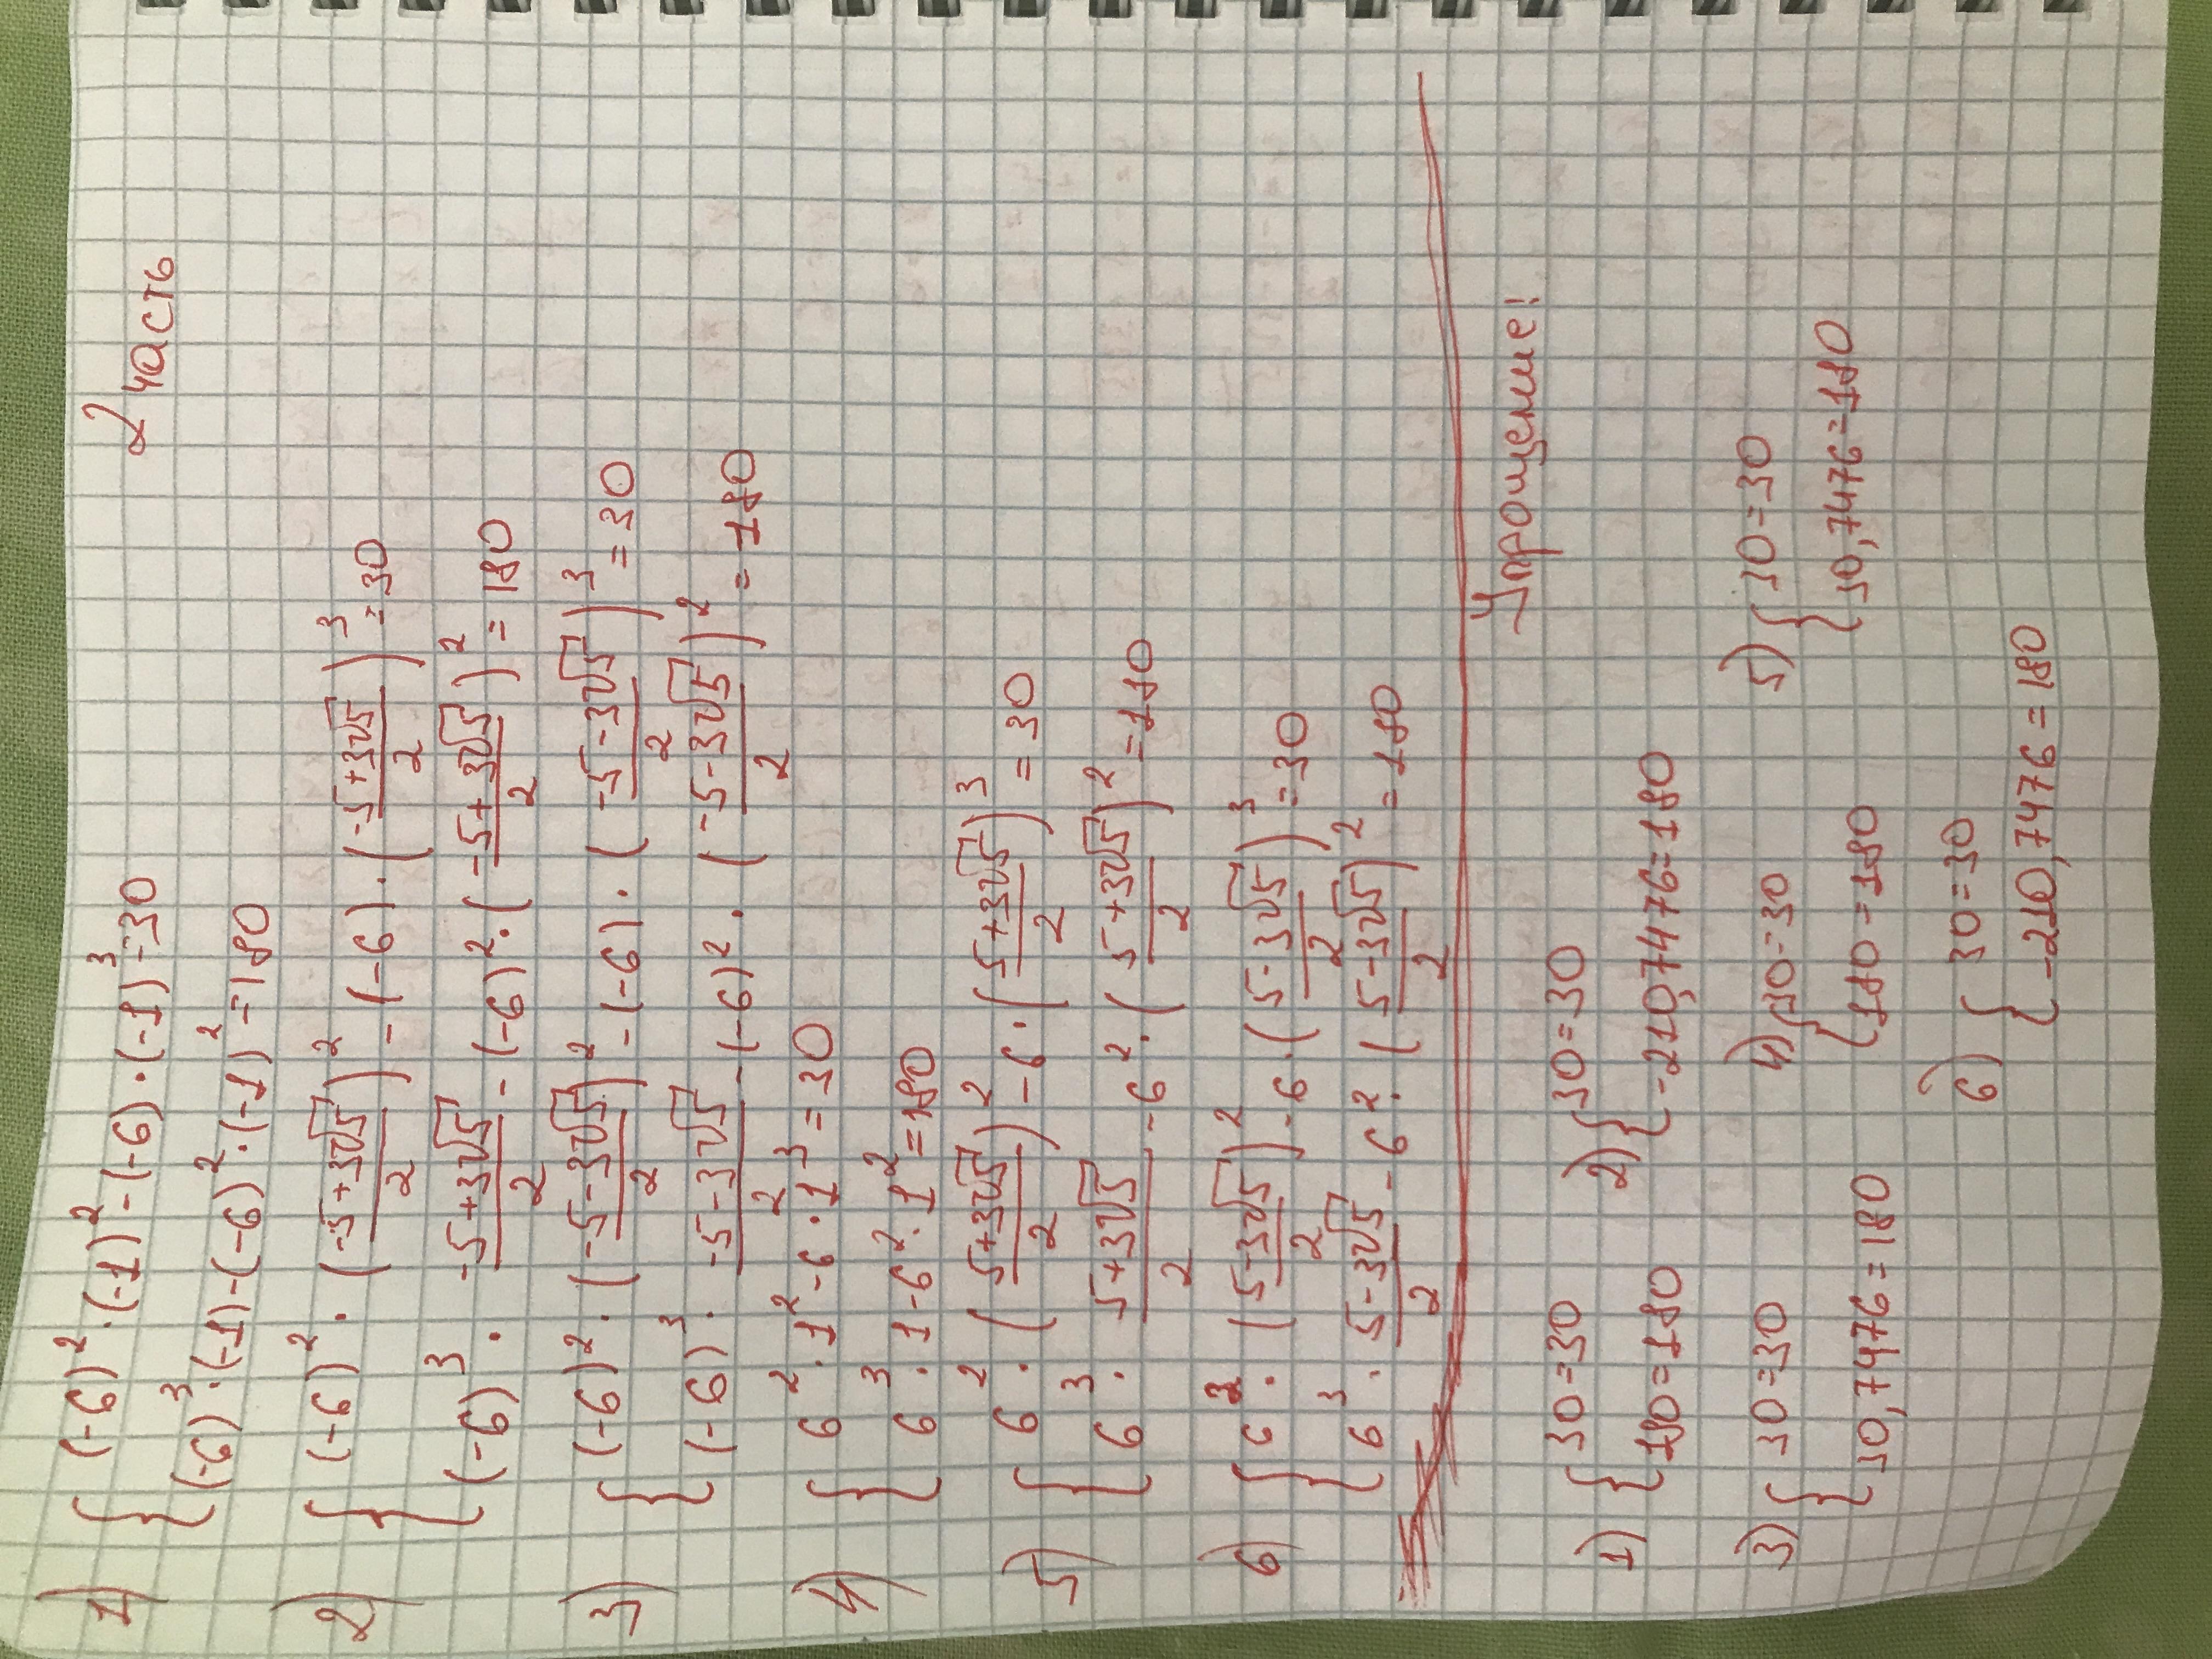 2 часть
1) { (-6)²·(-1)²-(-6)·(-1)³=30
(-6)³·(-1)-(-6)²·(-1)²=180
2) { (-6)²·((-5+3√5)/2)²-(-6)·((-5+3√5)/2)³=30
(-6)³·(-5+3√5)/2-(-6)²·((-5+3√5)/2)²=180
3) { (-6)²·((-5-3√5)/2)²-(-6)·((-5-3√5)/2)³=30
(-6)³·(-5-3√5)/2-(-6)²·((-5-3√5)/2)²=180
4) { 6²·1²-6·1³=30
6³·1-6²·1²=180
5) { 6²·((5+3√5)/2)²-6·((5+3√5)/2)³=30
6³·(5+3√5)/2-6²·((5+3√5)/2)²=180
6) { 6²·((5-3√5)/2)²-6·((5-3√5)/2)³=30
6³·(5-3√5)/2-6²·((5-3√5)/2)²=180
Упрощение!
1) { 30=30 2) { 30=30
180=180 -210,7476=180
3) { 30=30 4) { 30=30 5) { 30=30
30,7476=180 180=180 30,7476=180
6) { 30=30
-210,7476=180